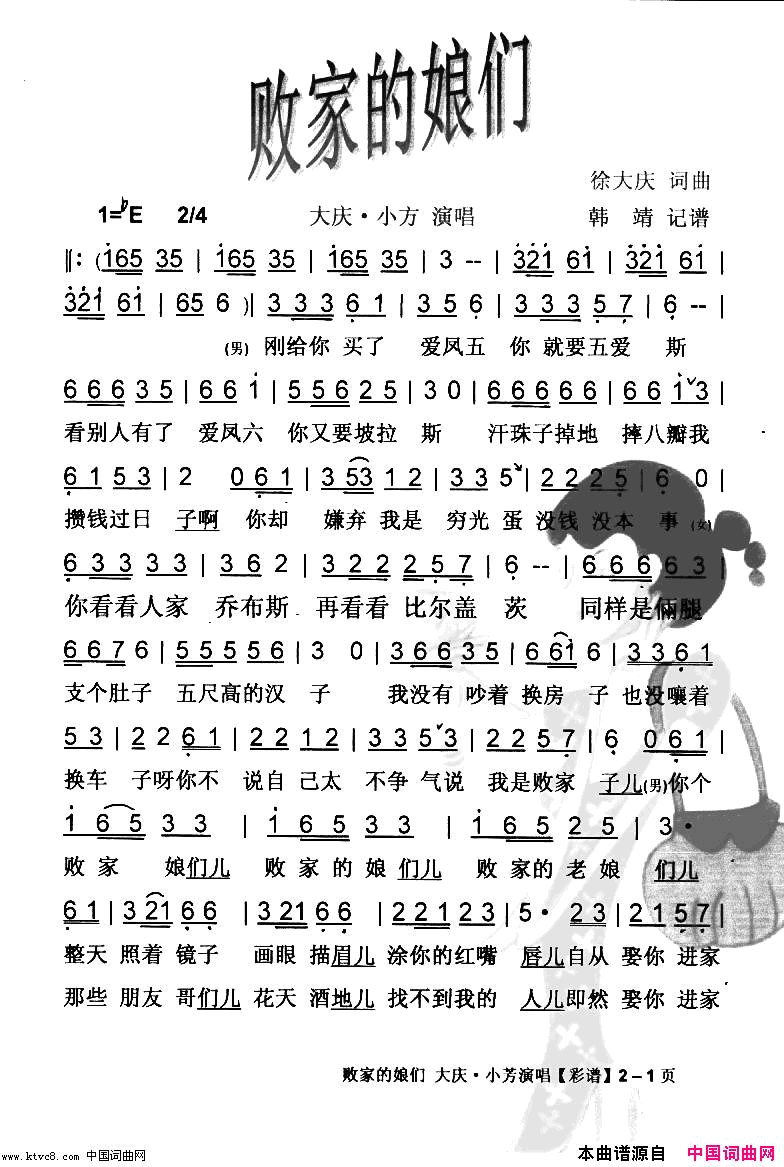 败家的娘们
徐大庆 词曲
1=♭E 2/4 大庆·小方 演唱 韩 靖 记谱
‖: (165 35 | 165 35 | 165 35 | 3 -- | 321 61 | 321 61 |
321 61 | 165 6 )| 3 3 3 6 1 | 3 5 6 | 3 3 3 5 7 | 6 -- |
(男) 刚给你 买了 爱凤五 你 就要五爱 斯
6 6 6 3 5 | 6 6 1 | 5 5 6 2 5 | 3 0 | 6 6 6 6 6 | 6 6 1 3 |
看别人有了 爱凤六 你又要坡拉 斯 汗珠子掉地 摔八瓣我
6 1 5 3 | 2 0 6 1 | 3 53 1 2 | 3 3 5 | 2 2 2 5 | 6 0 |
攒钱过日 子啊 你却 嫌弃 我是 穷光 蛋 没钱 没本 事 (女)
6 3 3 3 3 | 3 6 2 | 3 2 2 2 5 7 | 6 -- | 6 6 6 6 3 |
你看看人家 乔布斯 再看看 比尔盖 茨 同样是俩腿
6 6 7 6 | 5 5 5 5 6 | 3 0 | 3 6 6 3 5 | 6 61 6 | 3 3 6 1 |
支个肚子 五尺高的汉 子 我没有 吵着 换房 子 也没嚷着
5 3 | 2 2 6 1 | 2 2 1 2 | 3 3 5 3 | 2 2 2 5 | 6 0 6 1 |
换车 子呀你不 说自 己太 不争 气说 我是败家 子儿(男)你个
1 6 5 3 3 | 1 6 5 3 3 | 1 6 5 2 5 | 3·
败 家 娘们儿 败 家 的 娘 们儿 败 家的 老 娘 们儿
6 1 | 3 21 6 6 | 3 2 1 6 6 | 2 2 1 2 3 | 5· 2 3 | 2 1 5 7 |
整天 照着 镜子 画眼 描眉儿 涂你的红嘴 唇儿自从 娶你 进家
那些 朋友 哥们儿 花天 酒地儿 找不到我的 人儿即然 娶你 进家
败家的娘们 大庆·小芳演唱【彩谱】2－1页
www.ktvc8.com 中国词曲网
本曲谱源自 中国词曲网